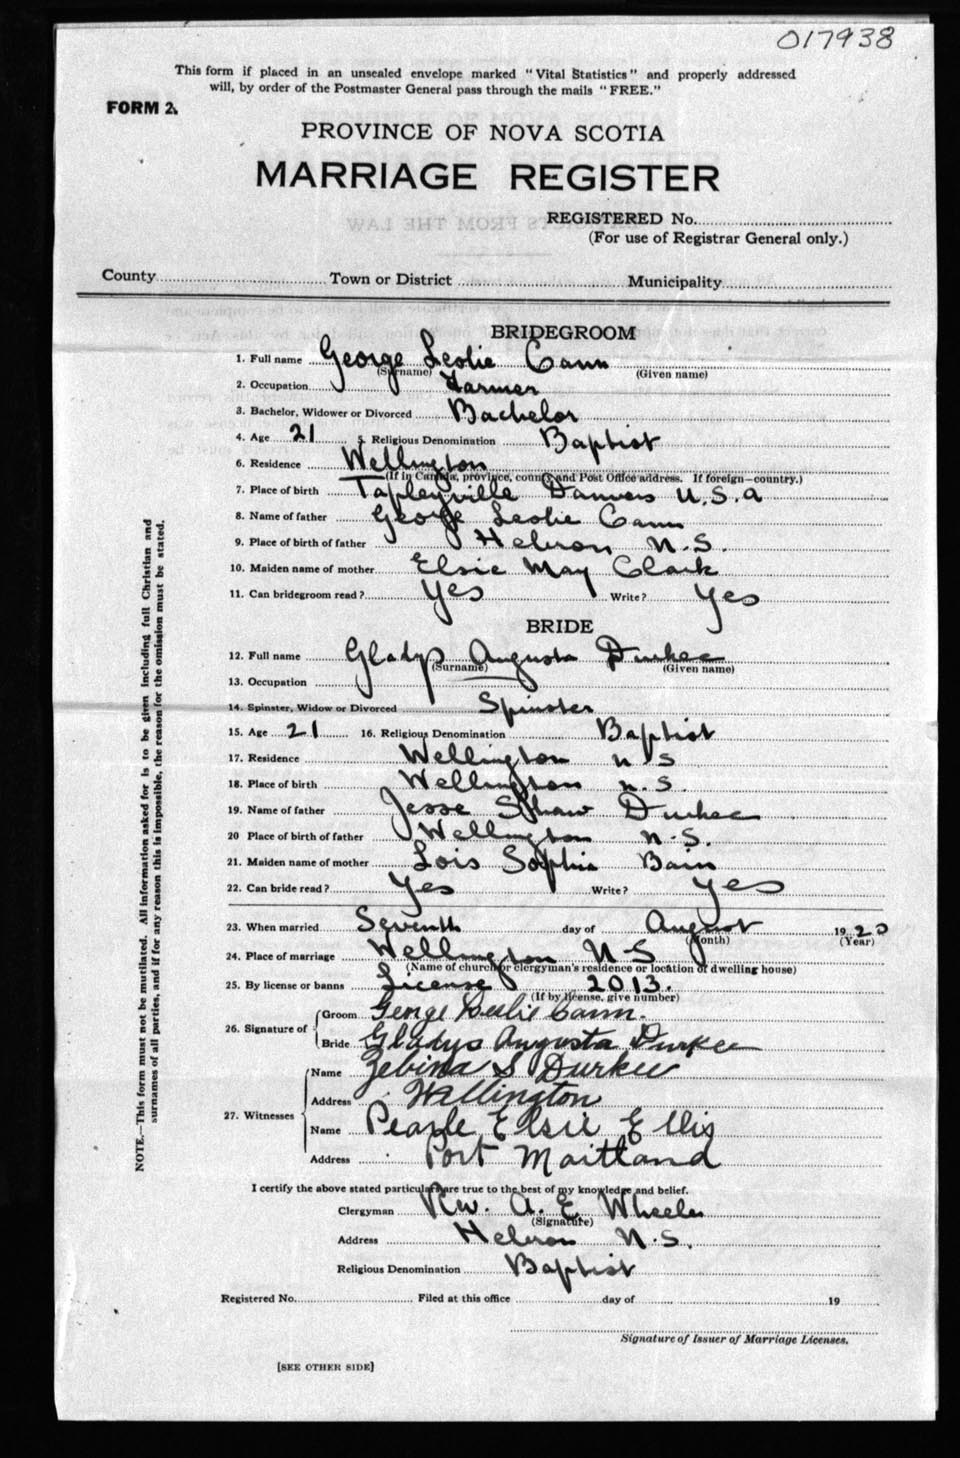 017938
This form if placed in an unsealed envelope marked "Vital Statistics" and properly addressed
will, by order of the Postmaster General pass through the mails "FREE."
FORM 2.
PROVINCE OF NOVA SCOTIA
MARRIAGE REGISTER
REGISTERED No.
(For use of Registrar General only.)
County Town or District Municipality
BRIDEGROOM
1. Full name George Leslie Cann
(Surname) (Given name)
2. Occupation Farmer
3. Bachelor, Widower or Divorced Bachelor
4. Age 21 5. Religious Denomination Baptist
6. Residence Wellington
(If in Canada, province, county and Post Office address. If foreign—country.)
7. Place of birth Tapleyville Danvers U.S.A
8. Name of father George Leslie Cann
9. Place of birth of father Hebron N.S.
10. Maiden name of mother Elsie May Clark
11. Can bridegroom read? Yes Write? Yes
BRIDE
12. Full name Gladys Augusta Durkee
(Surname) (Given name)
13. Occupation
14. Spinster, Widow or Divorced Spinster
15. Age 21 16. Religious Denomination Baptist
17. Residence Wellington N S
18. Place of birth Wellington N.S.
19. Name of father Jesse Shaw Durkee
20 Place of birth of father Wellington N.S.
21. Maiden name of mother Lois Sophia Bain
22. Can bride read? Yes Write? Yes
23. When married Seventh day of August 1920
(Month) (Year)
24. Place of marriage Wellington N S
(Name of church or clergyman's residence or location of dwelling house)
25. By license or banns License 2013.
(If by license, give number)
26. Signature of Groom George Leslie Cann.
Bride Gladys Augusta Durkee
27. Witnesses Name Zebina S Durkee
Address Wellington
Name Pearle Elsie Ellis
Address Port Maitland
I certify the above stated particulars are true to the best of my knowledge and belief.
Clergyman Rev. A. E. Wheeler
(Signature)
Address Hebron N.S.
Religious Denomination Baptist
Registered No. Filed at this office day of 19
Signature of Issuer of Marriage Licenses.
[SEE OTHER SIDE]
NOTE.—This form must not be mutilated. All information asked for is to be given including full Christian and
surnames of all parties, and if for any reason this is impossible, the reason for the omission must be stated.